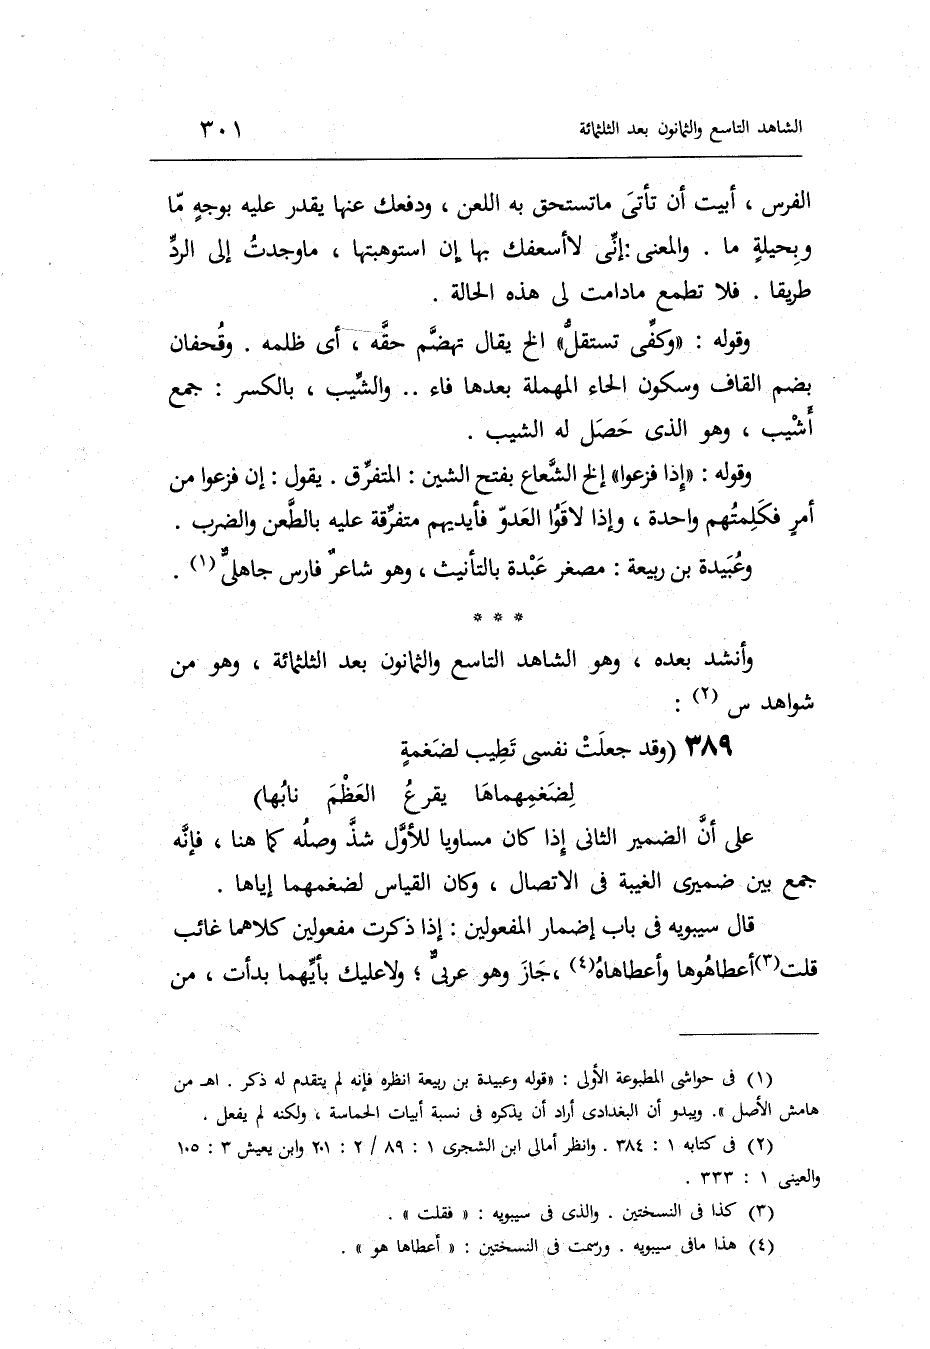 الشاهد التاسع والثمانون بعد الثلثمائة ٣٠١
الفرس ، أبيت أن تأتىَ ماتستحق به اللعن ، ودفعك عنها يقدر عليه بوجهٍ مّا
وبِحيلةٍ ما . والمعنى :إنِّى لاأسعفك بها إن استوهبتها ، ماوجدتُ إلى الردِّ
طريقا . فلا تطمع مادامت لى هذه الحالة .
وقوله : «وكفِّى تستقلُّ» الخ يقال تهضَّم حقَّه ، أى ظلمه . وقُحفان
بضم القاف وسكون الحاء المهملة بعدها فاء .. والشِّيب ، بالكسر : جمع
أَشْيب ، وهو الذى حَصَل له الشيب .
وقوله : «إذا فزعوا» إلخ الشَّعاع بفتح الشين : المتفرِّق . يقول : إن فزعوا من
أمرٍ فكَلِمتُهم واحدة ، وإذا لاقَوُا العَدوّ فأيديهم متفرِّقة عليه بالطَّعن والضرب .
وعُبَيدة بن ربيعة : مصغر عَبْدة بالتأنيث ، وهو شاعرٌ فارس جاهلىٌّ (١) .
* * *
وأنشد بعده ، وهو الشاهد التاسع والثمانون بعد الثلثمائة ، وهو من
شواهد س (٢) :
٣٨٩ (وقد جعلَتْ نفسى تَطِيب لضَغمةٍ
لِضَغمِهماهَا يقرعُ العَظْمَ نابُها)
على أنَّ الضمير الثانى إِذا كان مساويا للأوَّل شذَّ وصلُه كما هنا ، فإنَّه
جمع بين ضميرى الغيبة فى الاتصال ، وكان القياس لضغمهما إياها .
قال سيبويه فى باب إضمار المفعولين : إذا ذكرت مفعولين كلاهما غائب
قلت(٣)أعطاهُوها وأعطاهاهُ(٤) ،جَازَ وهو عربىٌّ ؛ ولاعليك بأيِّهما بدأت ، من
(١) فى حواشى المطبوعة الأولى : «قوله وعبيدة بن ربيعة انظره فإنه لم يتقدم له ذكر . اهـ من
هامش الأصل ». ويبدو أن البغدادى أراد أن يذكره فى نسبة أبيات الحماسة ، ولكنه لم يفعل .
(٢) فى كتابه ١ : ٣٨٤ . وانظر أمالى ابن الشجرى ١ : ٨٩ / ٢ : ٢٠١ وابن يعيش ٣ : ١٠٥
والعينى ١ : ٣٣٣ .
(٣) كذا فى النسختين . والذى فى سيبويه : « فقلت » .
(٤) هذا مافى سيبويه . ورسمت فى النسختين : « أعطاها هو » .